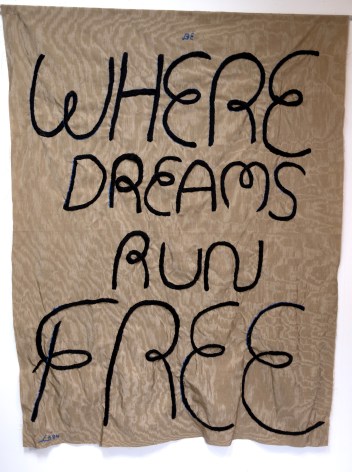 BE
WHERE
DREAMS
RUN
FREE